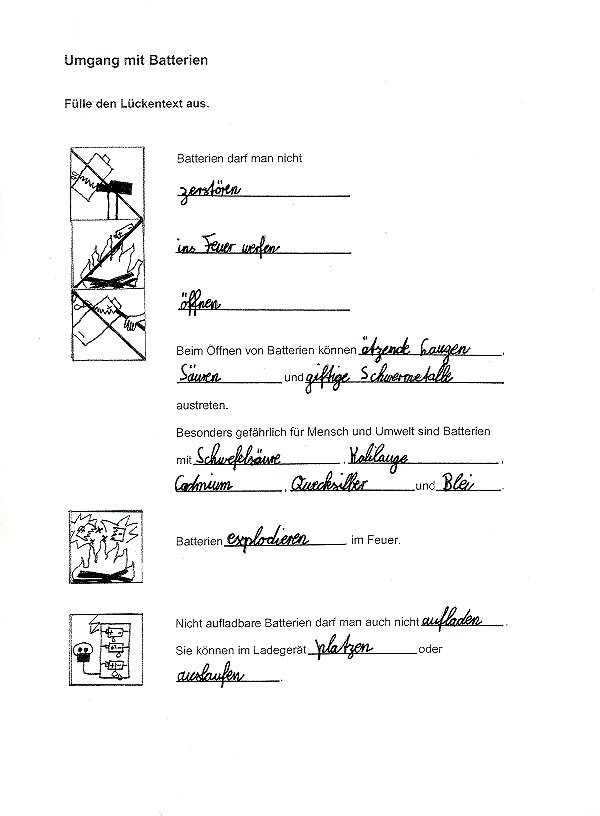 Umgang mit Batterien
Fülle den Lückentext aus.
Batterien darf man nicht
zerstören
ins Feuer werfen
öffnen
Beim Öffnen von Batterien können ätzende Laugen,
Säuren und giftige Schwermetalle
austreten.
Besonders gefährlich für Mensch und Umwelt sind Batterien
mit Schwefelsäure, Kalilauge,
Cadmium, Quecksilber und Blei.
Batterien explodieren im Feuer.
Nicht aufladbare Batterien darf man auch nicht aufladen.
Sie können im Ladegerät platzen oder
auslaufen.